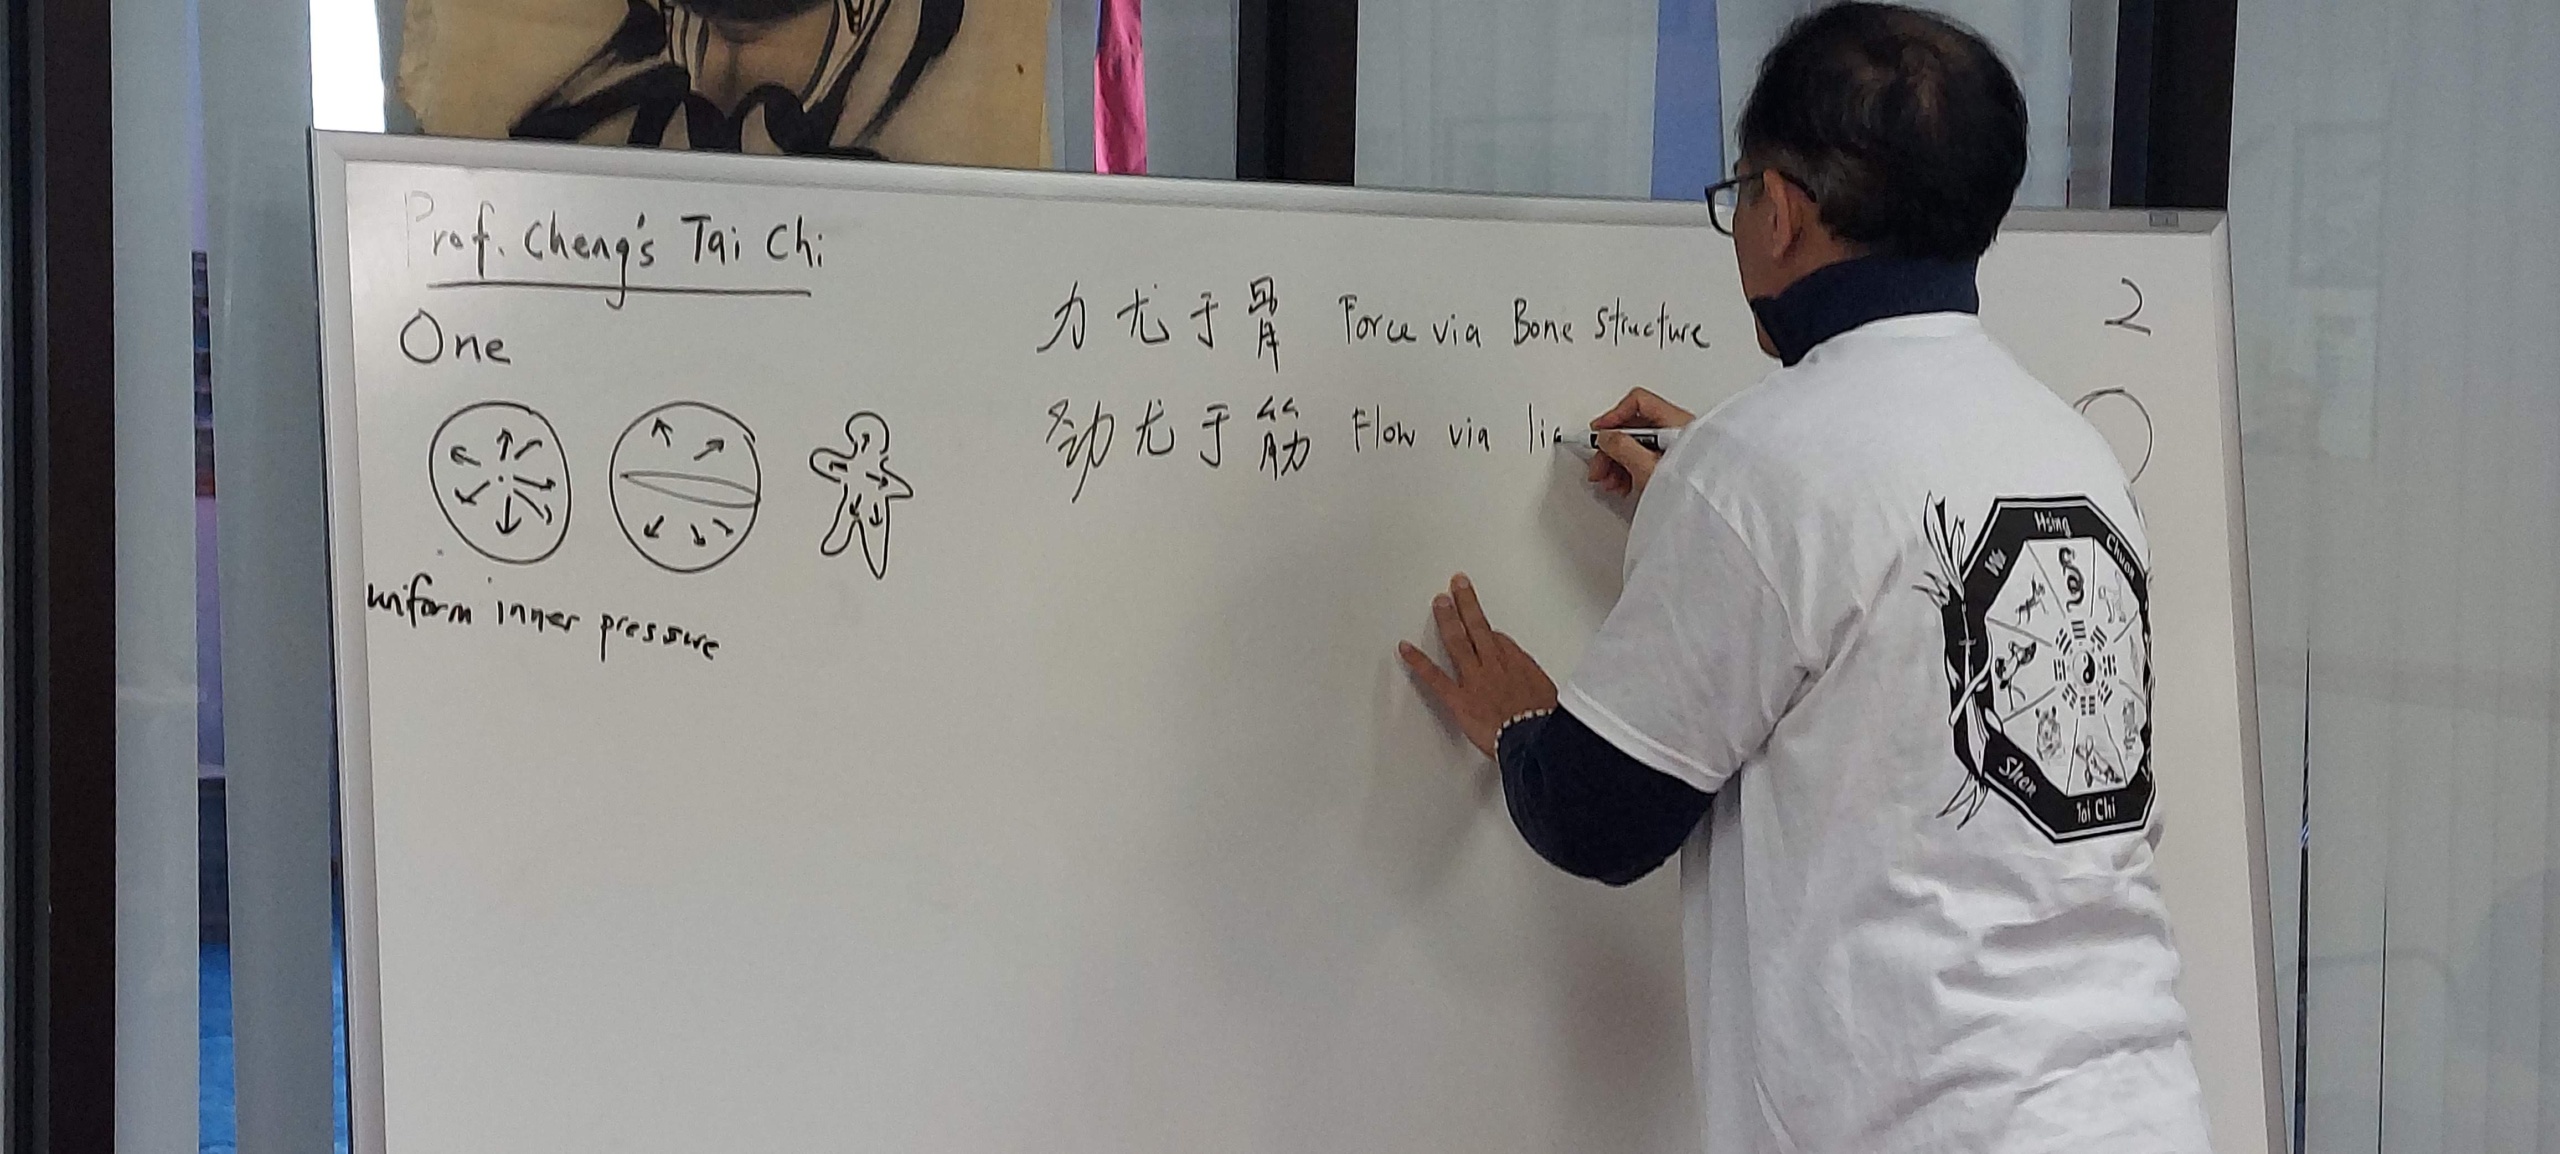 Prof. Cheng's Tai Chi
One
uniform inner pressure
力尤于骨 Force via Bone Structure
劲尤于筋 Flow via
2
Wu Hsing Chuan
Shen Tai Chi